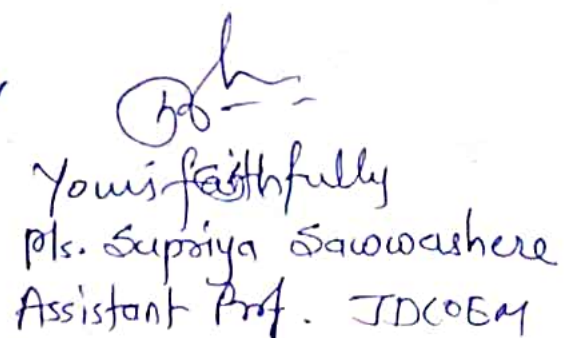 Yours faithfully
Ms. Supriya Sawwashere
Assistant Prof. JDCOEM